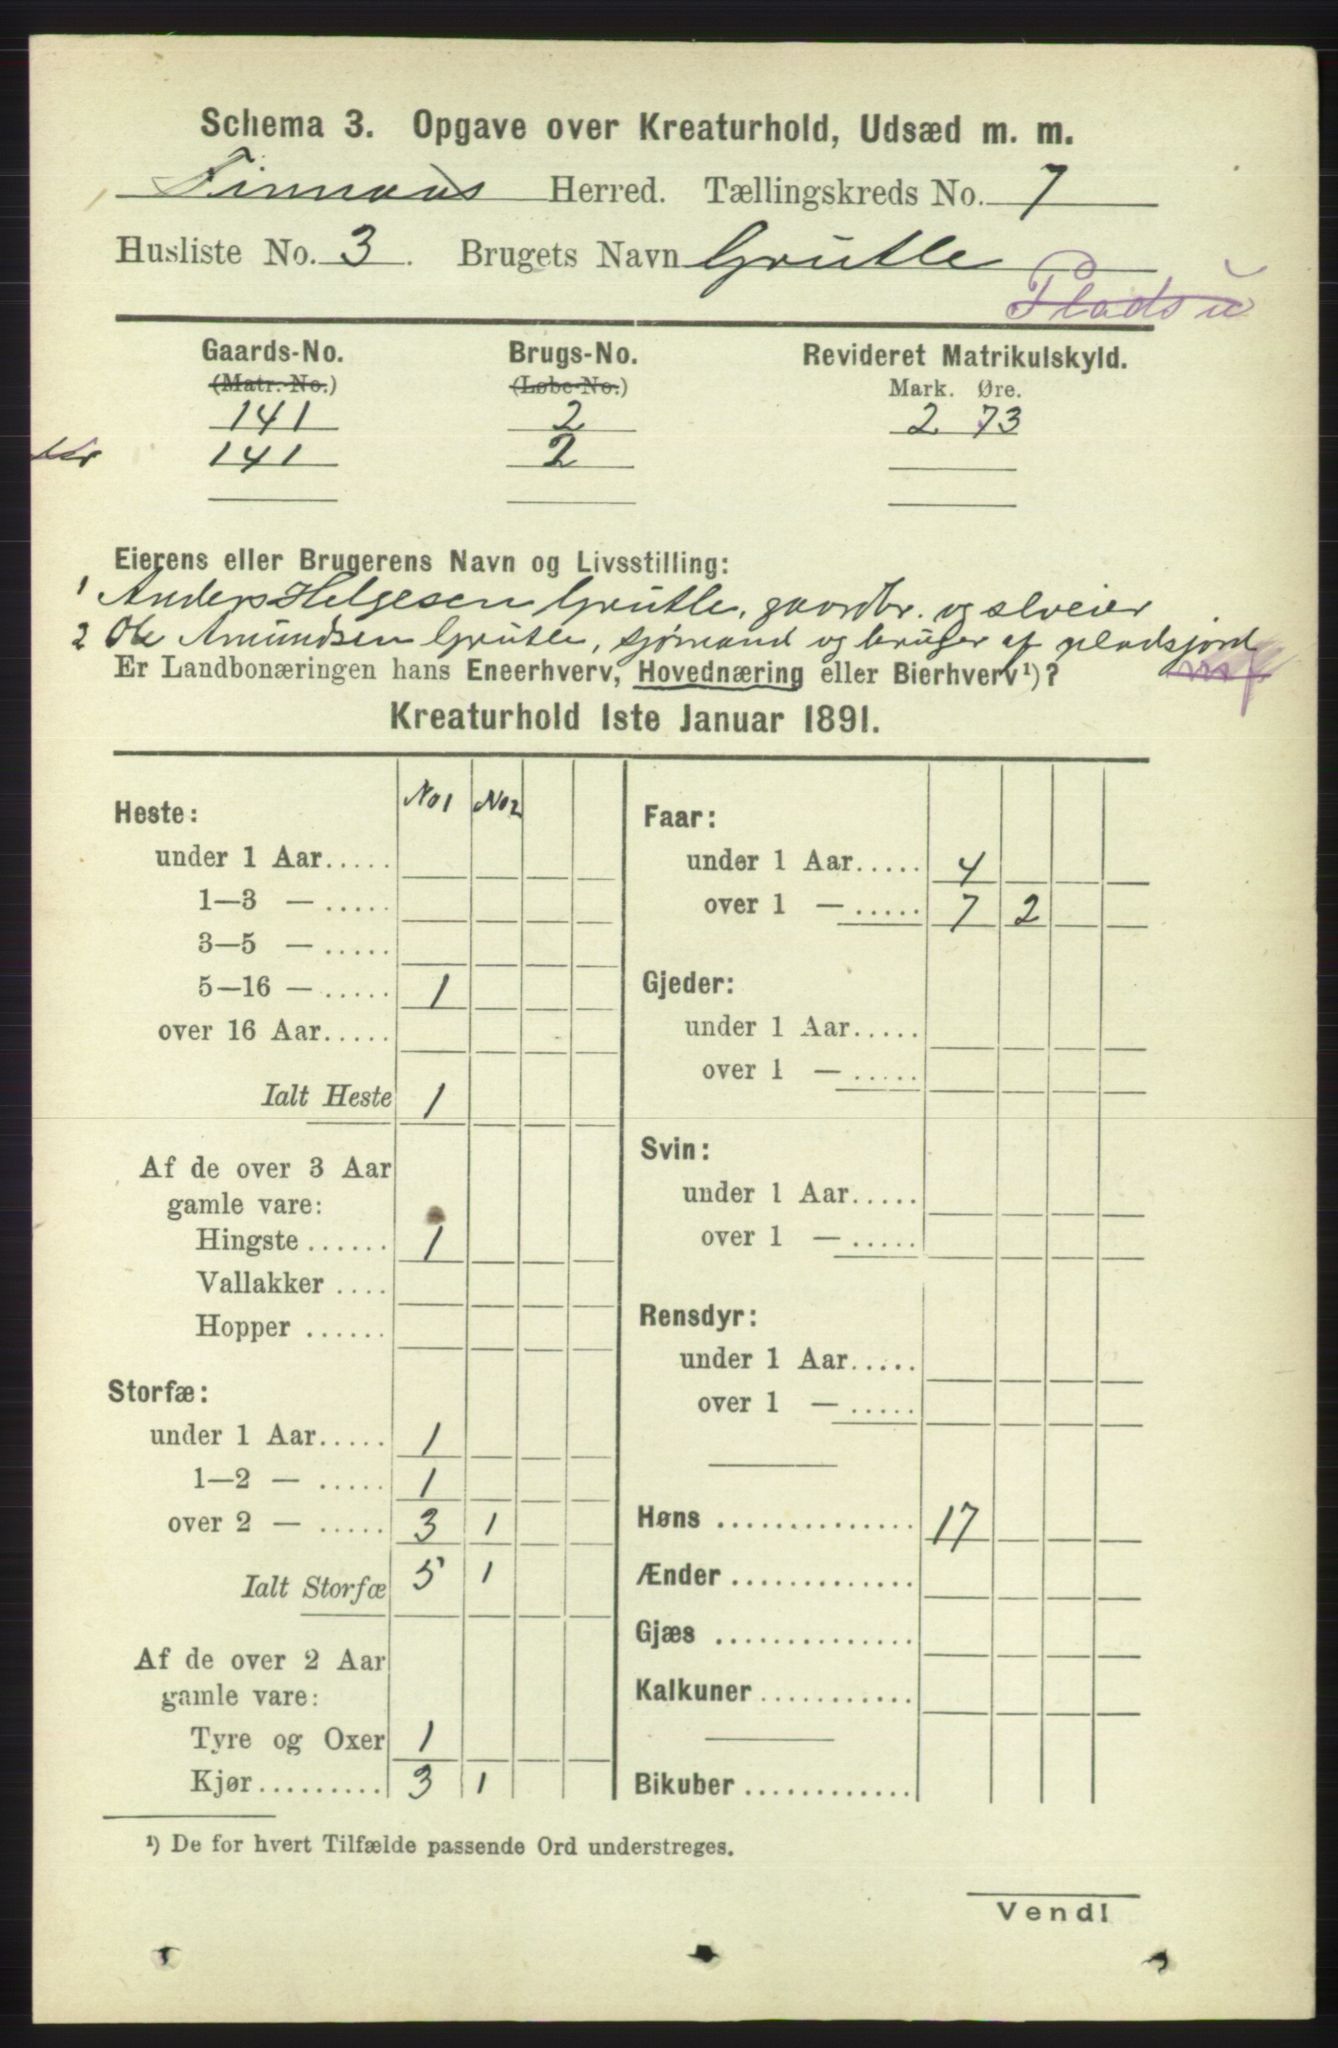 Schema 3. Opgave over Kreaturhold, Udsæd m. m.
Finnaas Herred. Tællingskreds No. 7
Husliste No. 3. Brugets Navn Grutle
Plads u
Gaards-No. Brugs-No. Revideret Matrikulskyld.
(Matr.-No.) (Løbe-No.) Mark. Øre.
141 2 2 73
141 2
Eierens eller Brugerens Navn og Livsstilling:
1 Anders Helgesen Grutle, gaardbr. og selveier
2 Ole Amundsen Grutle, sjømand og bruger af pladsjord
Er Landbonæringen hans Eneerhverv, Hovednæring eller Bierhverv¹)?
Kreaturhold 1ste Januar 1891.
No 1 No 2
Heste:
under 1 Aar.....
1—3 — .....
3—5 — .....
5—16 — ..... 1
over 16 Aar.....
Ialt Heste 1
Af de over 3 Aar
gamle vare:
Hingste ...... 1
Vallakker ....
Hopper ......
Storfæ:
under 1 Aar..... 1
1—2 — ..... 1
over 2 — ..... 3 1
Ialt Storfæ 5 1
Af de over 2 Aar
gamle vare:
Tyre og Oxer 1
Kjør......... 3 1
Faar:
under 1 Aar..... 4
over 1 — ..... 7 2
Gjeder:
under 1 Aar.....
over 1 — .....
Svin:
under 1 Aar.....
over 1 — .....
Rensdyr:
under 1 Aar.....
over 1 — .....
Høns .............. 17
Ænder .............
Gjæs ..............
Kalkuner...........
Bikuber ............
¹) De for hvert Tilfælde passende Ord understreges.
Vend!